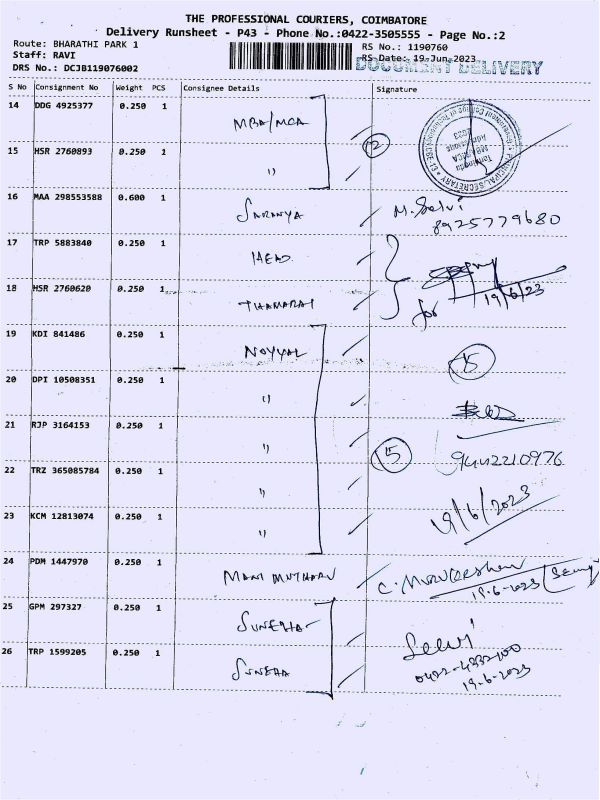 THE PROFESSIONAL COURIERS, COIMBATORE
Delivery Runsheet - P43 - Phone No.:0422-3505555 - Page No.:2
Route: BHARATHI PARK 1
RS No.: 1190760
Staff: RAVI
RS Date: 19-Jun-2023
DRS No.: DCJB119076002
DOCUMENT DELIVERY
S No Consignment No Weight PCS Consignee Details Signature
14 DDG 4925377 0.250 1 MBA/MCA
15 HSR 2760893 0.250 1 "
2
16 MAA 298553588 0.600 1 SARANYA M. Selvi
8925779680
17 TRP 5883840 0.250 1 HEAD
18 HSR 2760620 0.250 1 THAMARAI
for 19/6/23
19 KDI 841486 0.250 1 NOYYAL
15
20 DPI 10508351 0.250 1 "
21 RJP 3164153 0.250 1 "
5 9442210976
22 TRZ 365085784 0.250 1 "
19/6/2023
23 KCM 12813074 0.250 1 "
24 PDM 1447970 0.250 1 MANI
19.6.2023
25 GPM 297327 0.250 1
26 TRP 1599205 0.250 1 SUNEHA
19.6.2023